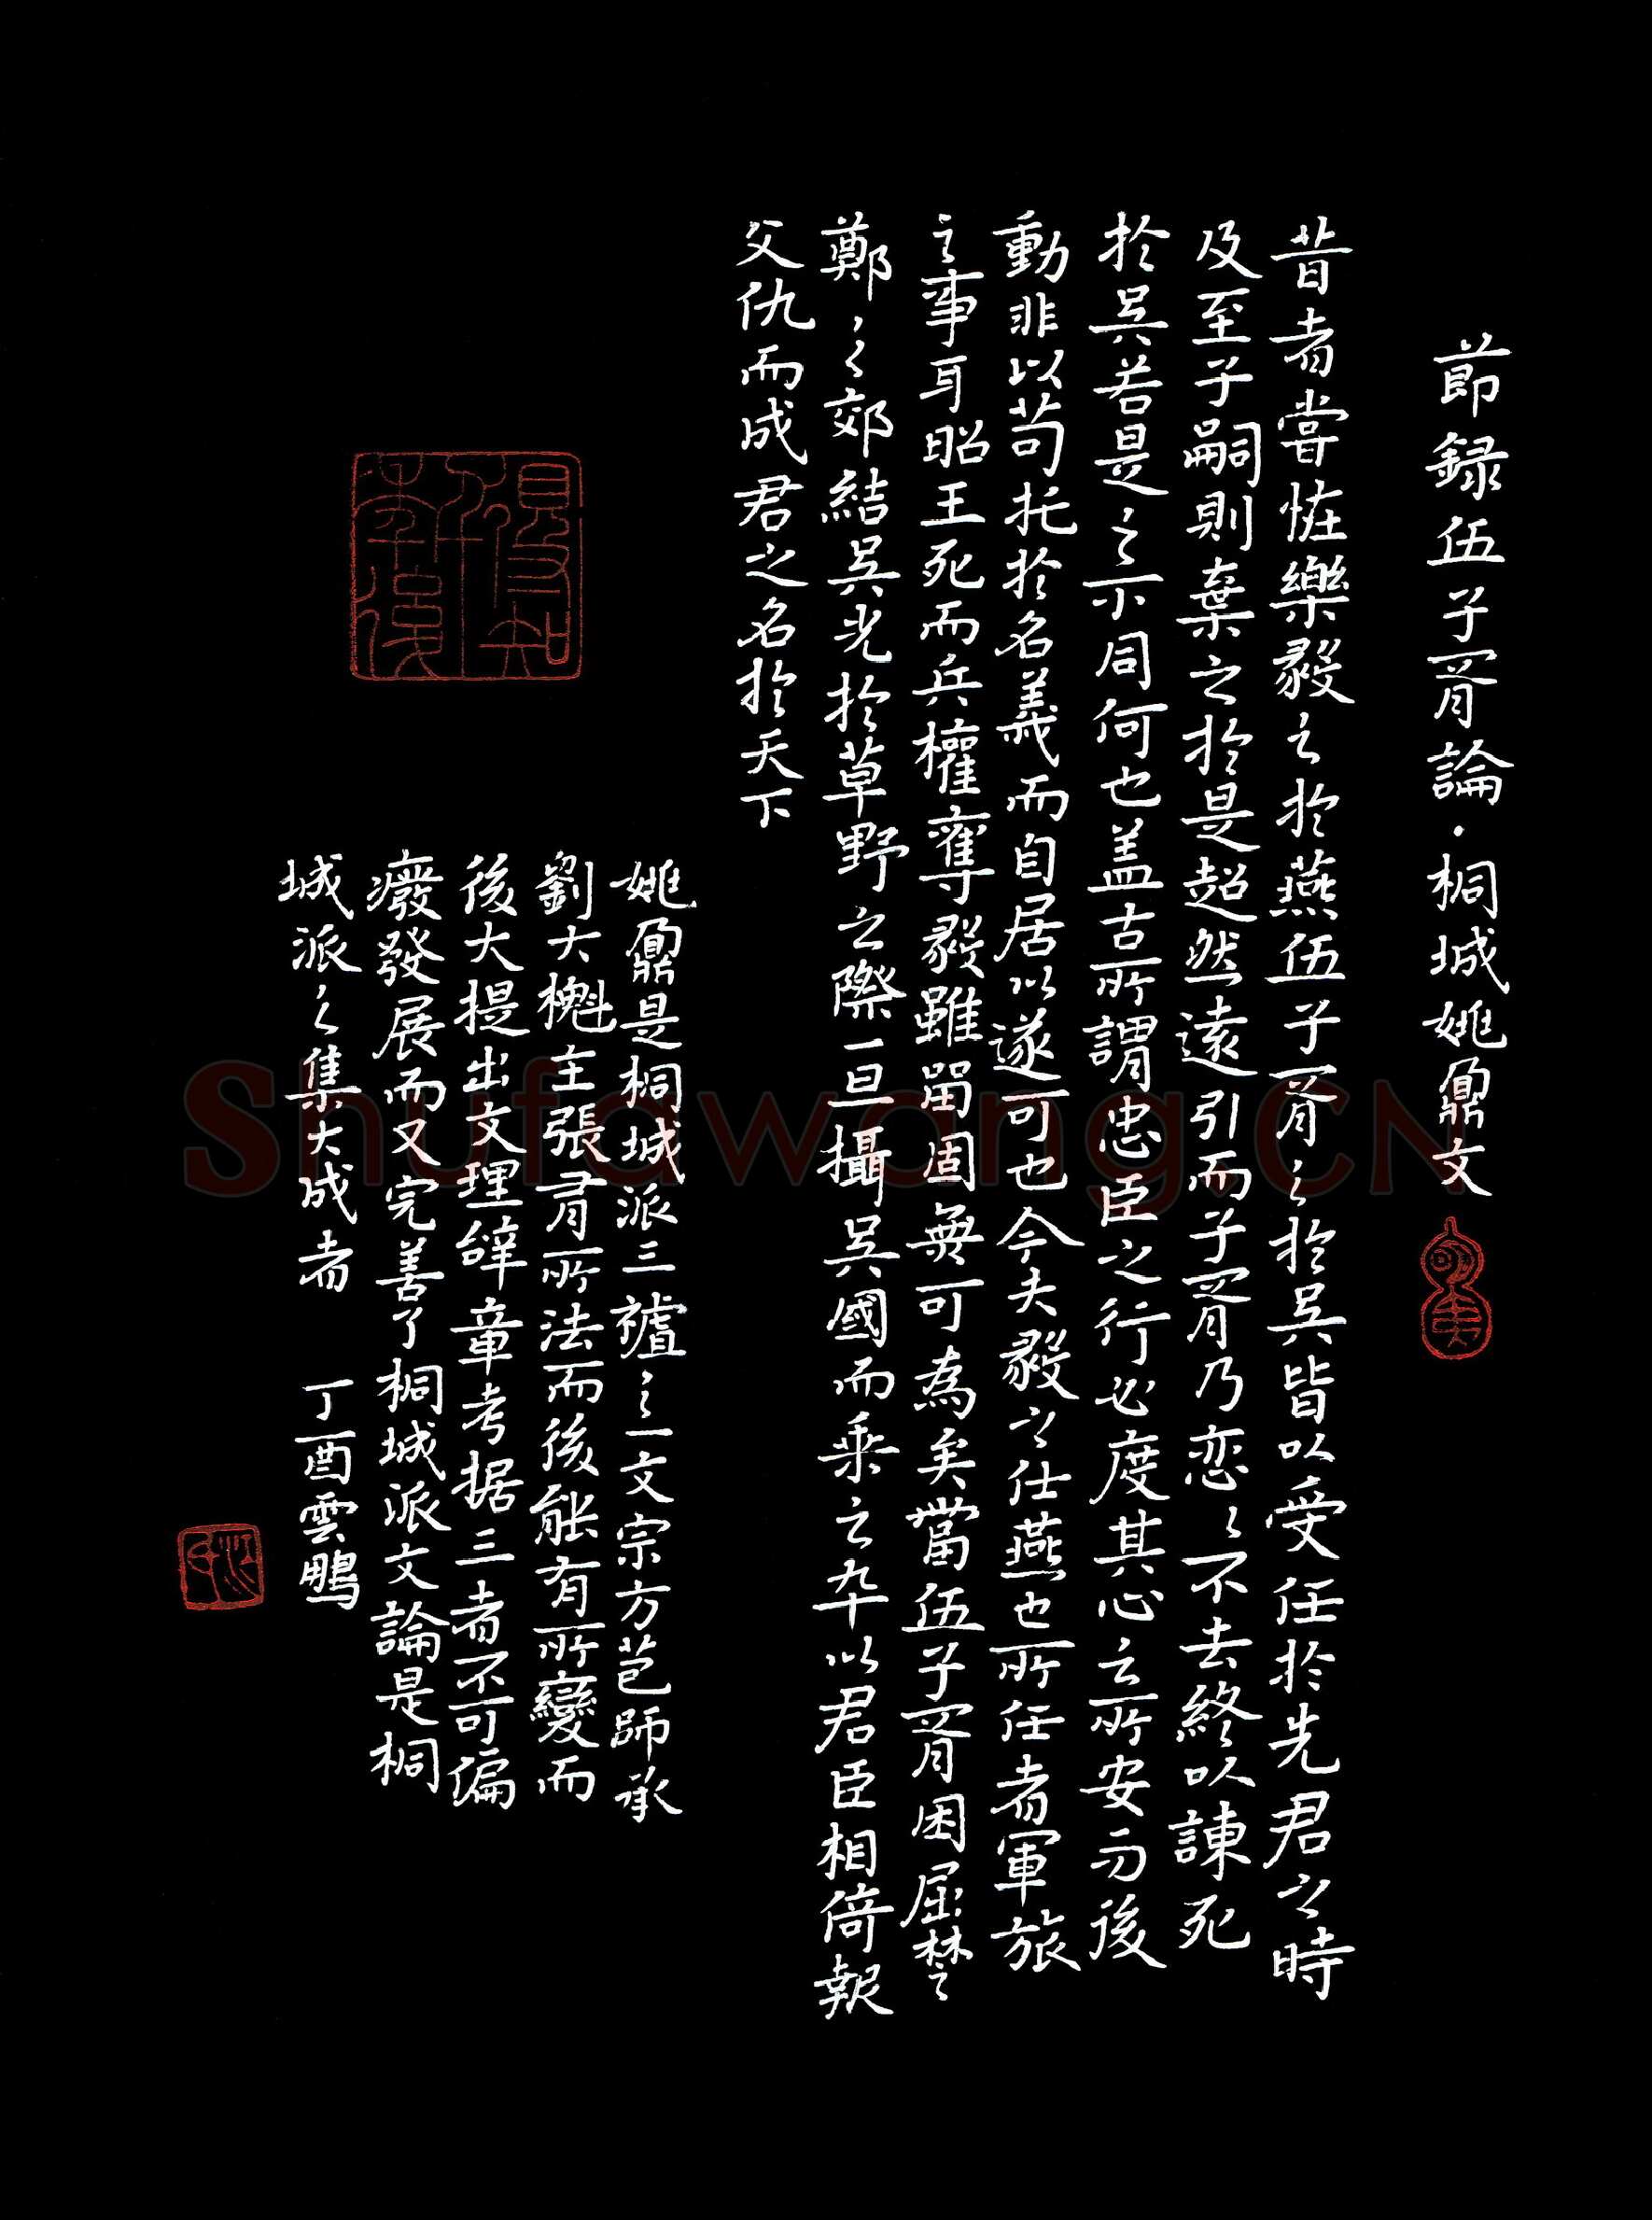 節録伍子胥論·桐城姚鼐文
昔者嘗恠樂毅之於燕伍子胥之於吳皆以受任於先君之時
及至子嗣則棄之於是超然遠引而子胥乃恋々不去終以諫死
於吳若是之不同何也盖古所謂忠臣之行必度其心之所安而後
動非以苟托於名義而自居以遂可也今夫毅之仕燕也所任者軍旅
之事耳昭王死而兵權奪毅雖留固無可為矣當伍子胥困屈楚
鄭之郊結吳光於草野之際一旦攝吳國而乘之卒以君臣相倚報
父仇而成君之名於天下
姚鼐是桐城派三祖之一文宗方苞師承
劉大櫆主張有所法而後能有所變而
後大提出文理辭章考据三者不可偏
廢發展而又完善了桐城派文論是桐
城派之集大成者 丁酉雲鵬
Shufawang.CN